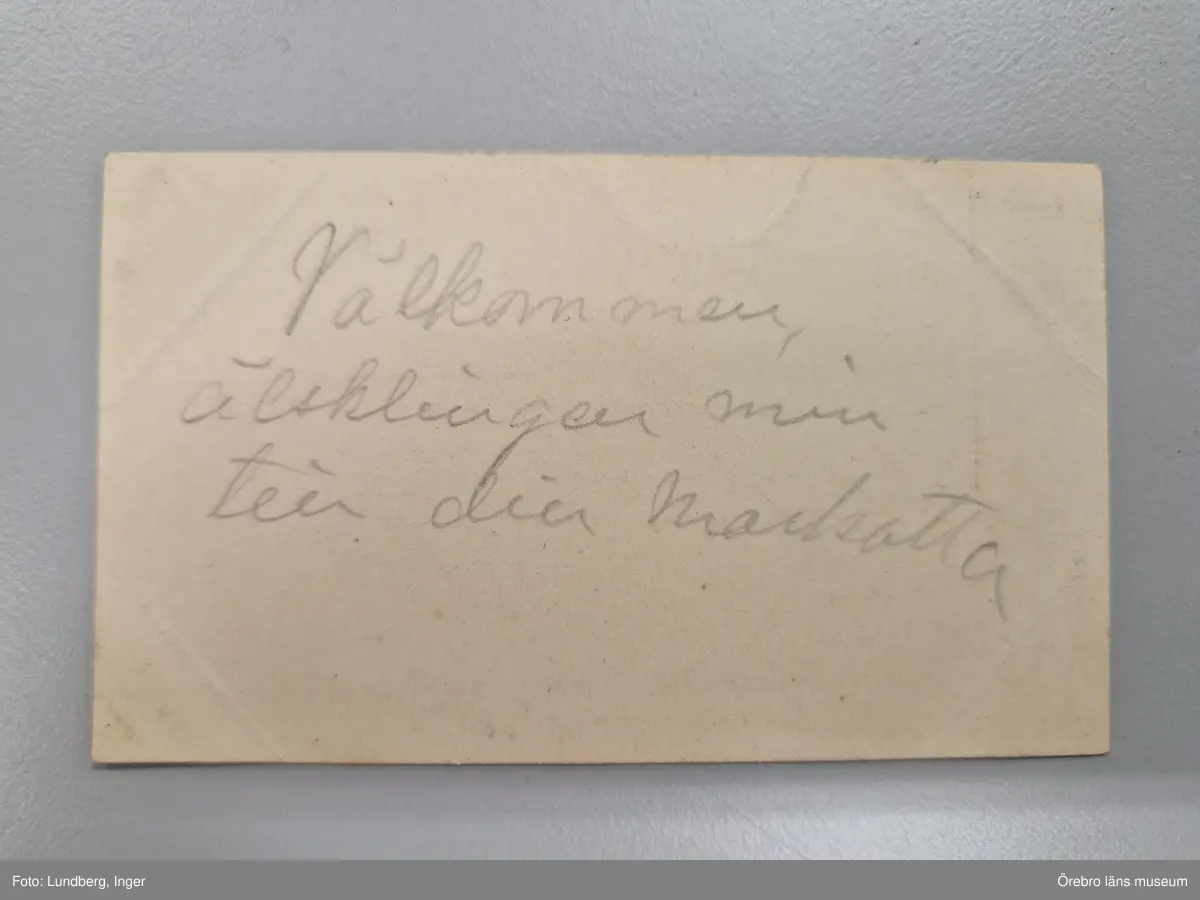 Välkommen,
älsklingen min
till din Markatta
Foto: Lundberg, Inger
Örebro läns museum